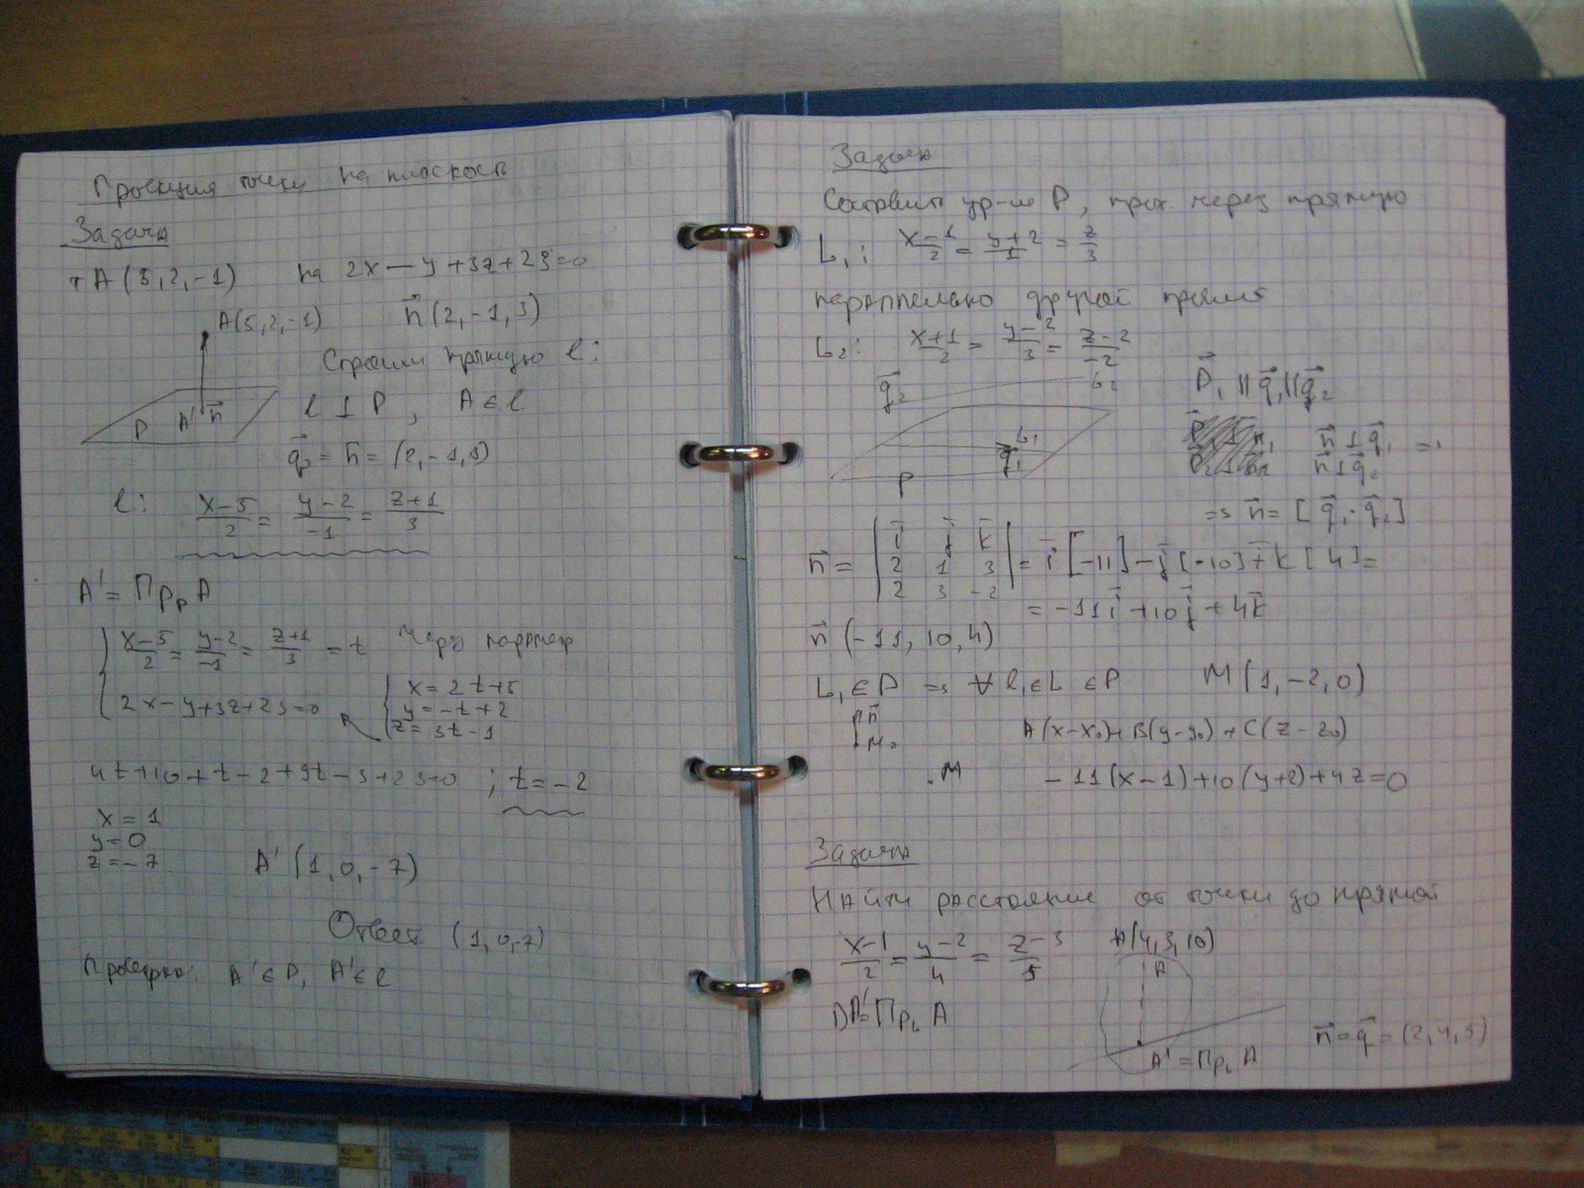 Проекция точки на плоскость
Задача
т A (5, 2, -1) на 2x - y + 3z + 23 = 0
A(5, 2, -1) n⃗ (2, -1, 3)
Строим прямую l:
l ⊥ P, A ∈ l
P A' n⃗
q⃗ = n⃗ = (2, -1, 3)
l: (x-5)/2 = (y-2)/-1 = (z+1)/3
A' = Пр_P A
{ (x-5)/2 = (y-2)/-1 = (z+1)/3 = t Через параметр
2x - y + 3z + 23 = 0 { x = 2t+5
y = -t+2
z = 3t-1
4t + 10 + t - 2 + 9t - 3 + 23 = 0 ; t = -2
x = 1
y = 0
z = -7
A' (1, 0, -7)
Ответ (1, 0, -7)
Проверка: A' ∈ P, A' ∈ l
Задача
Составить ур-ие P, прох. через прямую
L₁: (x-1)/2 = (y+2)/1 = z/3
параллельно другой прямой
L₂: (x+1)/2 = (y-2)/3 = (z-2)/-2
q⃗₂ L₂ P⃗₁ || q⃗₁ || q⃗₂
L₁ q⃗₁ P
n⃗ ⊥ q⃗₁ =>
n⃗ ⊥ q⃗₂
=> n⃗ = [q⃗₁ · q⃗₂]
n⃗ = | i j k |
| 2 1 3 |
| 2 3 -2 | = i [-11] - j [-10] + k [4] =
= -11i + 10j + 4k
n⃗ (-11, 10, 4)
L₁ ∈ P => ∀ l₁ ∈ L ∈ P M (1, -2, 0)
n⃗
M₀ A(x-x₀) + B(y-y₀) + C(z-z₀)
. M -11(x-1) + 10(y+2) + 4z = 0
Задача
Найти расстояние от точки до прямой
(x-1)/2 = (y-2)/4 = (z-3)/5 A(4, 3, 10)
A
1) A' = Пр_L A
n⃗ = q⃗ = (2, 4, 5)
A' = Пр_L A